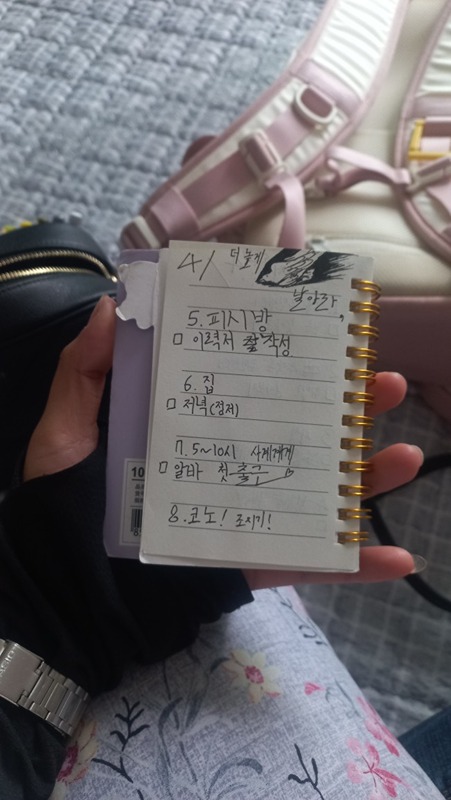 4/ 더 높게
날아라,
5. 피시방
□ 이력서 잘 작성
6. 집
□ 저녁(정저)
7. 5~10시 사계계계
□ 알바 첫 출근
8. 코노! 조지기!
10